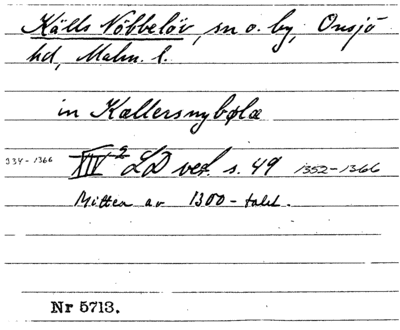 Källs Nöbbelöv, sn o. by, Onsjö
hd, Malm. l.
in Kællersnybølæ
334-1366 XIV 2 LD vet. s. 49 1352-1366
Mitten av 1300-talet.
Nr 5713.